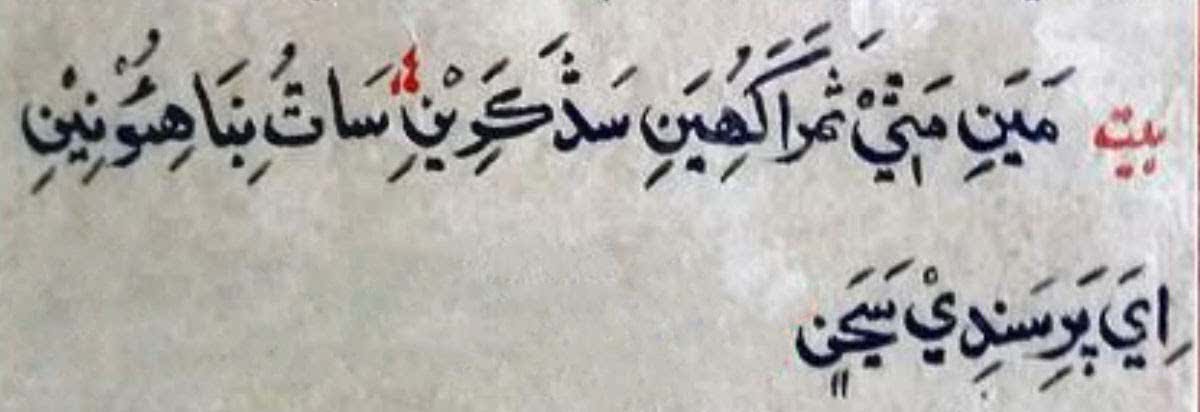 بيت مَيَنِ مَٿيْ ثَمَرَ اکَهُيَنِ سَڎَ ڪَرِيْنِ سَاتُ نِبَا هِئُونِيْنِ
اِيَ پَرِ سَنِدِيْ سَڄَنِ